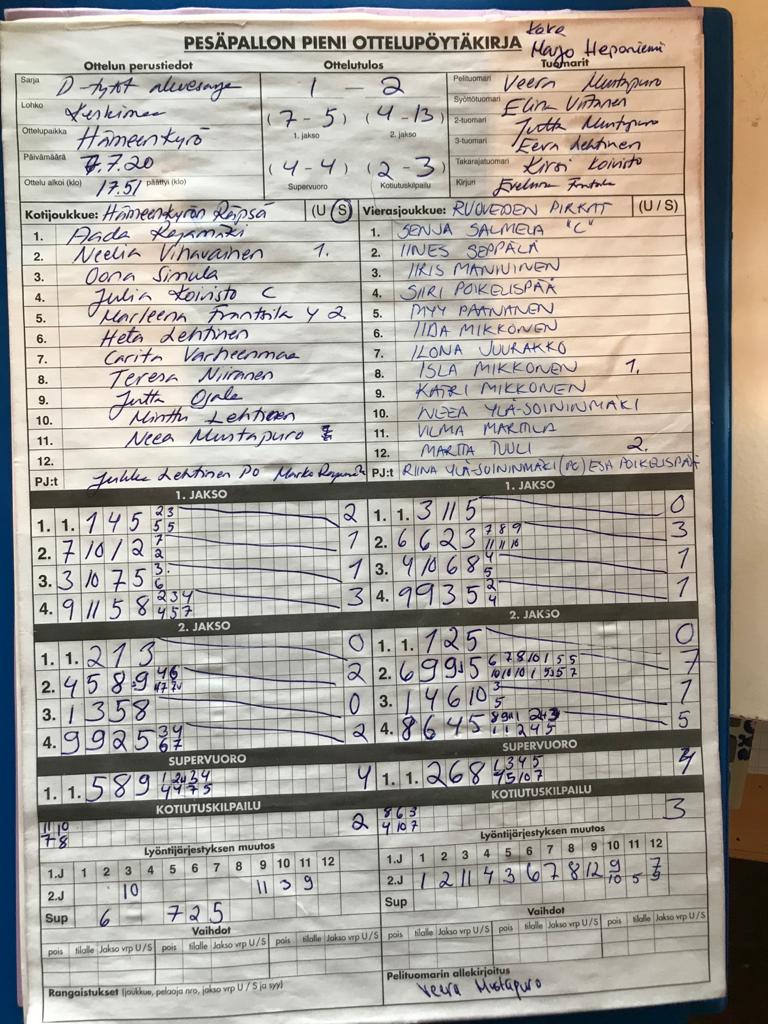 Kova
Marjo Heponiemi
PESÄPALLON PIENI OTTELUPÖYTÄKIRJA
Ottelun perustiedot
Ottelutulos
Tuomarit
Sarja D-tytöt aluesarja
1 - 2
Pelituomari Veera Mustapuro
Lohko
(7 - 5) (4 - 13)
Syöttötuomari Elina Virtanen
1. jakso 2. jakso
Ottelupaikka Hämeenkyrö
2-tuomari Jutta Mustapuro
3-tuomari Eeva Lehtinen
Päivämäärä 7.7.20
(4 - 4) (2 - 3)
Takarajatuomari Kirsi Koivisto
Ottelu alkoi (klo) 17.51 päättyi (klo)
Supervuoro Kotiutuskilpailu
Kirjuri Eveliina
Kotijoukkue: Hämeenkyrön Räpsä (U / S)
Vierasjoukkue: RUOVEDEN PIRKAT (U / S)
1. Aada Rajamäki
2. Neelia Vihavainen 1.
3. Oona Simula
4. Julia Koivisto C
5. Marleena Franttila y 2
6. Heta Lehtinen
7. Carita Varheenmaa
8. Teresa Niiranen
9. Jutta Ojala
10. Minttu Lehtinen
11. Neea Mustapuro
12.
PJ:t Jukka Lehtinen PO Marko
1. SENJA SALMELA "C"
2. IINES SEPPÄLÄ
3. IIRIS MANNINEN
4. SIIRI POIKELISPÄÄ
5. MYY PAANANEN
6. IIDA MIKKONEN
7. ILONA JUURAKKO
8. ISLA MIKKONEN 1.
9. KATRI MIKKONEN
10. NEEA YLÄ-SOININMÄKI
11. VILMA MARTTILA
12. MARTTA TUULI 2.
PJ:t RIINA YLÄ-SOININMÄKI (PO) ESA POIKELISPÄÄ
1. JAKSO
1. 1. 1 4 5 2 3 5 5 2
2. 7 10 1 2 7 2 1
3. 3 10 7 5 3 6 1
4. 9 11 5 8 2 3 4 4 5 7 3
1. JAKSO
1. 1. 3 11 5 0
2. 6 6 2 3 7 8 9 11 11 10 3
3. 4 10 6 8 4 5 1
4. 9 9 3 5 2 4 1
2. JAKSO
1. 1. 2 1 3 0
2. 4 5 8 9 4 6 2
3. 1 3 5 8 0
4. 9 9 2 5 3 4 6 7 2
2. JAKSO
1. 1. 1 2 5 0
2. 6 9 9 5 6 7 8 10 1 5 5 10 10 10 1 5 5 7 7
3. 1 4 6 10 3 5 1
4. 8 6 4 5 5
SUPERVUORO
1. 1. 5 8 9 4
SUPERVUORO
1. 1. 2 6 8 1 3 4 5 4 5 10 7 4
KOTIUTUSKILPAILU
11 10
7 8
2
KOTIUTUSKILPAILU
8 6 3
4 10 7
3
Lyöntijärjestyksen muutos
1.J 1 2 3 4 5 6 7 8 9 10 11 12
2.J 10 11 3 9
Sup 6 7 2 5
Lyöntijärjestyksen muutos
1.J 1 2 3 4 5 6 7 8 9 10 11 12
2.J 1 2 11 4 3 6 7 8 12 9 10 5
Sup
Vaihdot
pois tilalle Jakso vrp U / S pois tilalle Jakso vrp U / S pois tilalle Jakso vrp U / S
Vaihdot
pois tilalle Jakso vrp U / S pois tilalle Jakso vrp U / S pois tilalle Jakso vrp U / S
Rangaistukset (joukkue, pelaaja nro, jakso vrp U / S ja syy)
Pelituomarin allekirjoitus
Veera Mustapuro